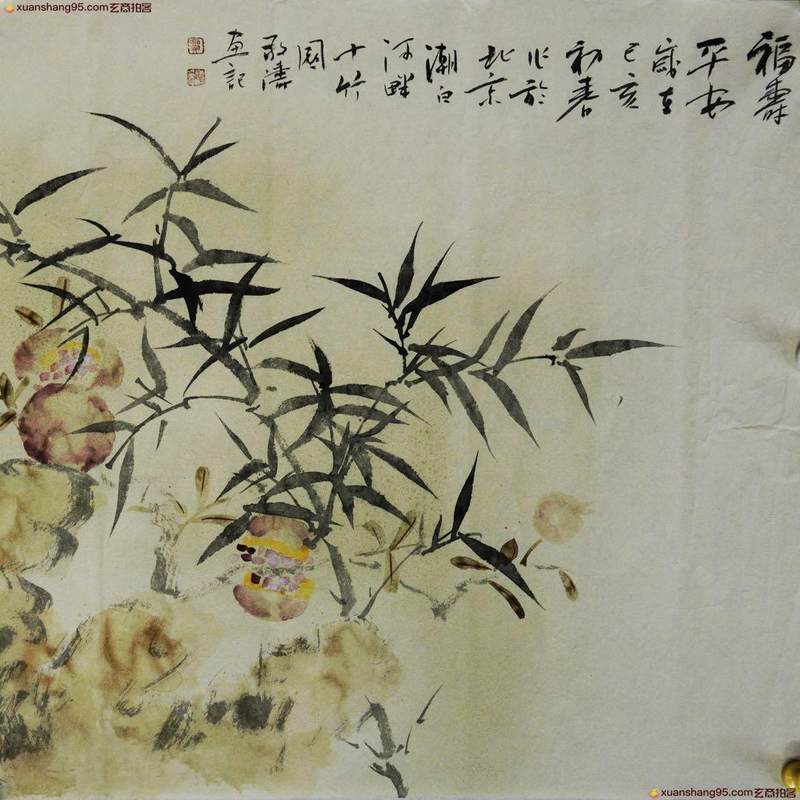 xuanshang95.com玄商拍客
福壽
平安
歲在
己亥
初春
作於
北京
潮白
河畔
十竹
園
敬濤
畫記
xuanshang95.com玄商拍客